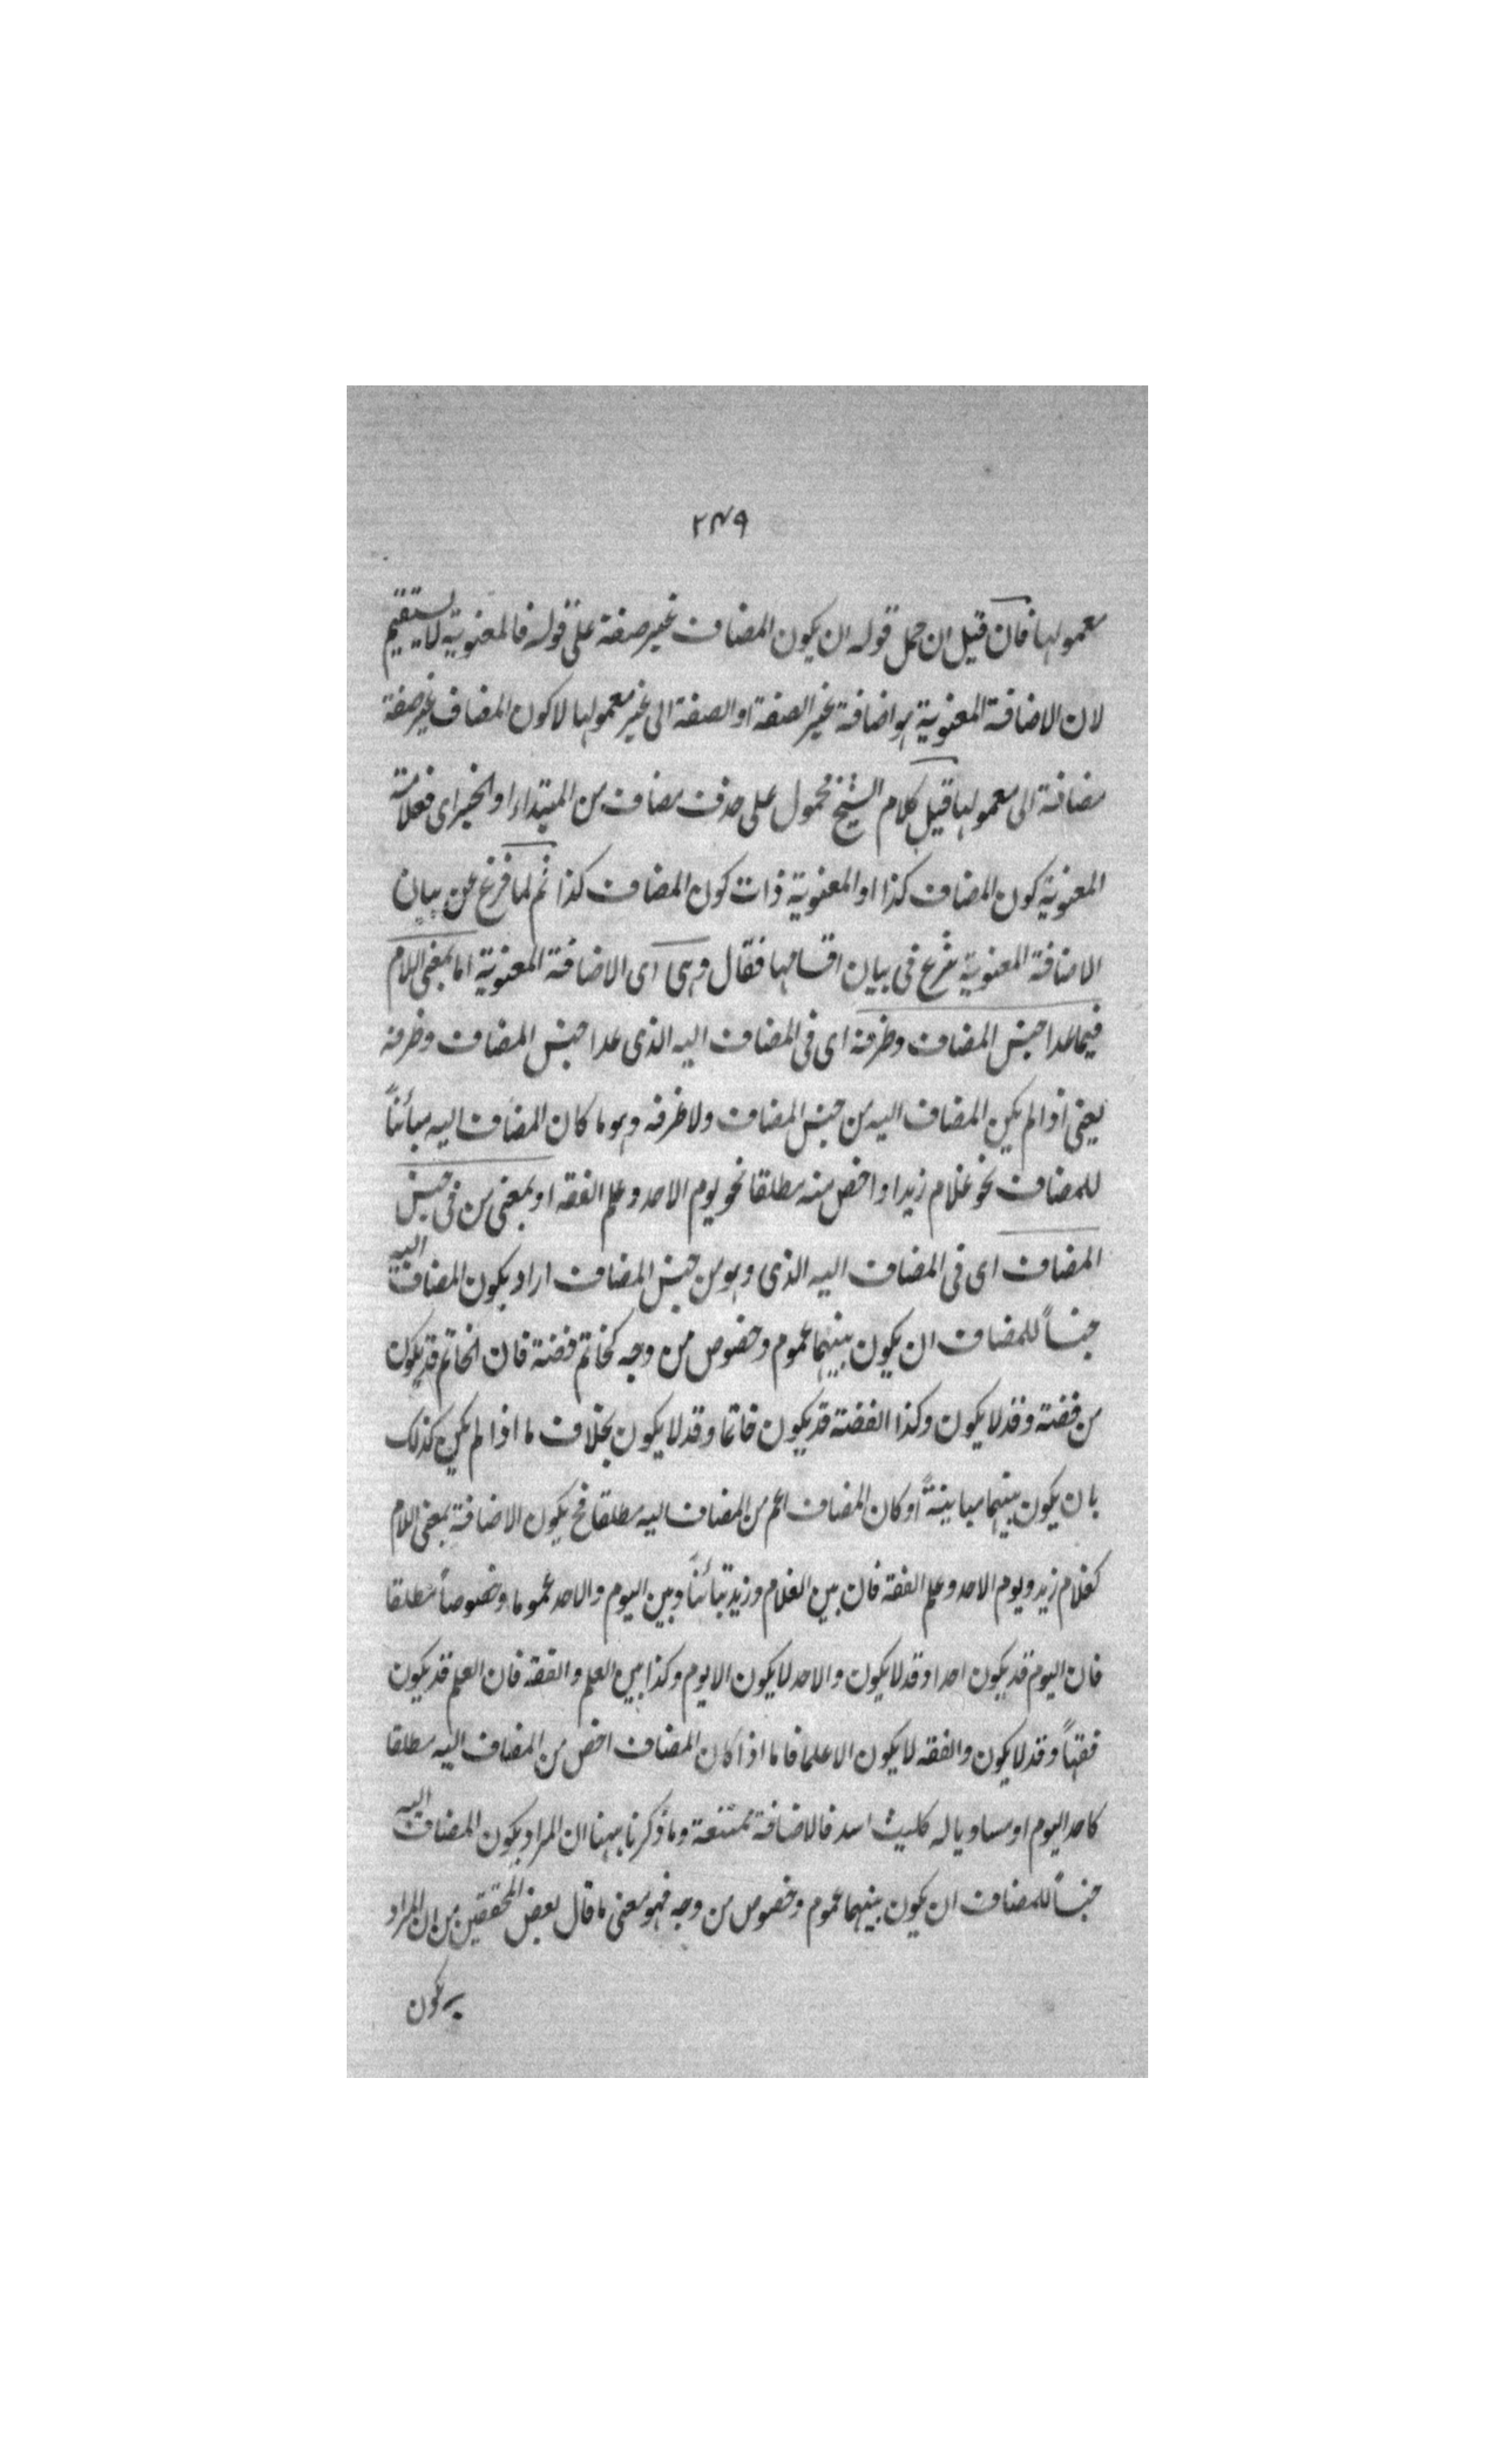 ٢٣٩
معمولها فان قيل ان حمل قوله ان يكون المضاف غير صفة على قوله فالمعنوية لا يستقيم
لان الاضافة المعنوية هو اضافة غير الصفة او الصفة الى غير معمولها لا كون المضاف غير صفة
مضافة الى معمولها قيل كلام الشيخ محمول على حذف مضاف من المبتداء او الخبر اى فعلامة
المعنوية كون المضاف كذا او المعنوية ذات كون المضاف كذا ثم لما فرغ عن بيان
الاضافة المعنوية شرع فى بيان اقسامها فقال وهى اى الاضافة المعنوية اما بمعنى اللام
فيما عدا جنس المضاف وظرفه اى فى المضاف اليه الذى عدا جنس المضاف وظرفه
يعنى اذا لم يكن المضاف اليه من جنس المضاف ولا ظرفه وهو ما كان المضاف اليه مبائناً
للمضاف نحو غلام زيد او اخص منه مطلقا نحو يوم الاحد وعلم الفقه او بمعنى من فى جنس
المضاف اى فى المضاف اليه الذى وهو من جنس المضاف اراد بكون المضاف اليه
جنساً للمضاف ان يكون بينهما عموم وخصوص من وجه كخاتم فضة فان الخاتم قد يكون
من فضة وقد لا يكون وكذا الفضة قد يكون خاتما وقد لا يكون بخلاف ما اذا لم يكن كذلك
بان يكون بينهما مباينةً او كان المضاف اعم من المضاف اليه مطلقا فح يكون الاضافة بمعنى اللام
كغلام زيد ويوم الاحد وعلم الفقه فان بين الغلام وزيد تبائناً وبين اليوم والاحد عموما وخصوصاً مطلقا
فان اليوم قد يكون احدا وقد لا يكون والاحد لا يكون الا يوم وكذا بين العلم والفقه فان العلم قد يكون
فقهاً وقد لا يكون والفقه لا يكون الا علما فاما اذا كان المضاف اخص من المضاف اليه مطلقا
كاحد اليوم او مساويا له كليث اسد فالاضافة ممتنعة وما ذكرنا ههنا ان المراد بكون المضاف اليه
جنساً للمضاف ان يكون بينهما عموم وخصوص من وجه فهو معنى ما قال بعض المحققين من ان المراد
بكون